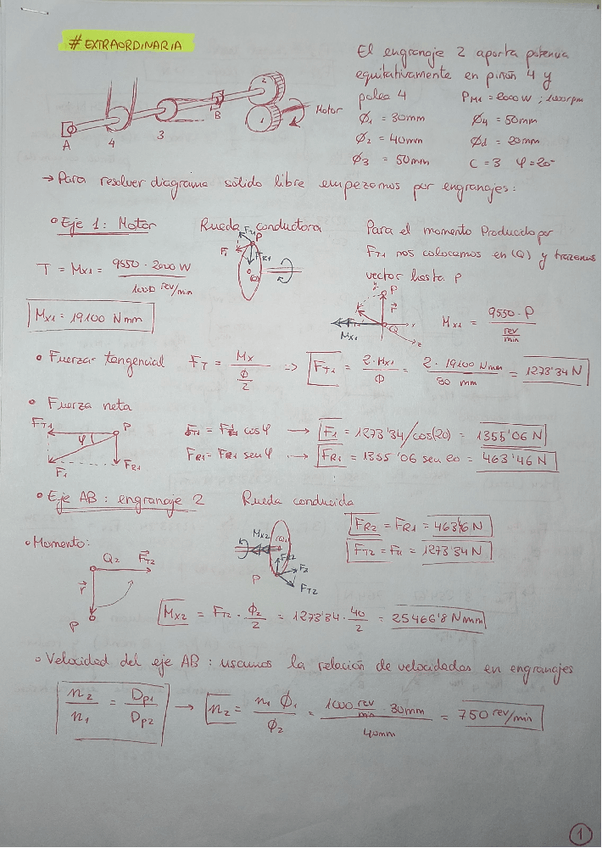 # EXTRAORDINARIA
El engranaje 2 aporta potencia
equitativamente en piñón 4 y
polea 4 P_M1 = 2000 W ; 1000 rpm
Ø1 = 30mm Ø4 = 50mm
Ø2 = 40mm Ød = 20mm
Ø3 = 50mm C = 3 φ = 20º
A 4 3 B 2 1 Motor
→ Para resolver diagrama sólido libre empezamos por engranajes:
º Eje 1: Motor Rueda conductora Para el momento Producido por
F_T1 nos colocamos en (Q) y trazamos
vector hasta P
T = M_X1 = 9550 · 2000 W / 1000 rev/min
M_X1 = 19100 Nmm
M_X1 = 9550 · P / rev/min
P r Q M_X1
º Fuerzar tangencial F_T = M_X / Ø/2 → F_T1 = 2·M_X1 / Ø = 2 · 19100 Nmm / 30 mm = 1273'34 N
º Fuerza neta
F_T1 P φ F_1 F_R1
F_T1 = F_1 cos φ → F_1 = 1273'34/cos(20) = 1355'06 N
F_R1 = F_R1 sen φ → F_R1 = 1355'06 sen 20 = 463'46 N
º Eje AB: engranaje 2 Rueda conducida
F_R2 = F_R1 = 463'46 N
F_T2 = F_T1 = 1273'34 N
º Momento:
Q2 F_T2 r P
M_X2 P F_R2 F_2 F_T2
M_X2 = F_T2 · Ø2/2 = 1273'34 · 40/2 = 25466'8 Nmm
º Velocidad del eje AB: usamos la relación de velocidades en engranajes
n2/n1 = Dp1/Dp2 → n2 = n1 Ø1 / Ø2 = 1000 rev/min · 30mm / 40mm = 750 rev/min
1